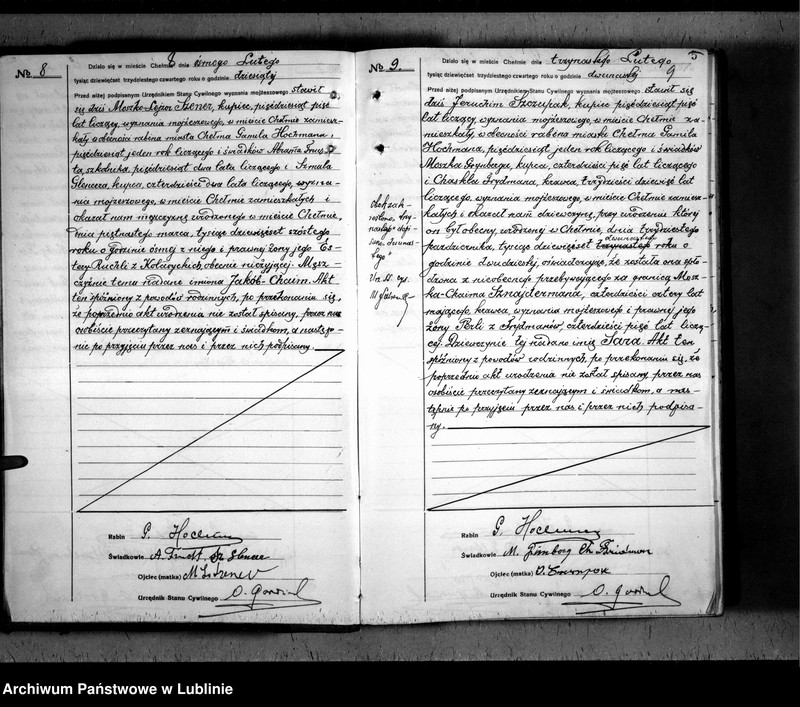 № 8
Działo się w mieście Chełmie dnia 8 ósmego Lutego
tysiąc dziewięćset trzydziestego czwartego roku o godzinie dziesiątej
Przed niżej podpisanym Urzędnikiem Stanu Cywilnego wyznania mojżeszowego, stawił
się dziś Moszko-Lejzor Szener, kupiec, pięćdziesiąt pięć
lat liczący, wyznania mojżeszowego, w mieście Chełmie zamiesz-
kały w obecności rabina miasta Chełma Gamula Hochmana,
pięćdziesiąt jeden rok liczącego i świadków Abrama
szkolnika, pięćdziesiąt dwa lata liczącego i Szmula
Glencera, kupca, czterdzieści dwa lata liczącego, wyzna-
nia mojżeszowego, w mieście Chełmie zamieszkałych i
okazał nam mężczyznę urodzonego w mieście Chełmie,
dnia piętnastego marca, tysiąc dziewięćset szóstego
roku o godzinie ósmej z niego i prawnej żony jego Es-
tery-Ruchli z obecnie nieżyjącej. Męż-
czyźnie temu nadane imiona Jakób-Chaim. Akt
ten spóźniony z powodów rodzinnych, po przekonaniu się,
że poprzednio akt urodzenia nie został spisany, przez nas
osobiście przeczytany zeznającym i świadkom, a następ-
nie po przyjęciu przez nas i przez nich podpisany.
Rabin G. Hochman
Świadkowie A. Sz. Glencer
Ojciec (matka) M. L. Szener
Urzędnik Stanu Cywilnego
№ 9.
5
9
Działo się w mieście Chełmie dnia trzynastego Lutego
tysiąc dziewięćset trzydziestego czwartego roku o godzinie dwunastej
Przed niżej podpisanym Urzędnikiem Stanu Cywilnego wyznania mojżeszowego, stawił się
dziś Jeruchim Szczupak, kupiec, pięćdziesiąt pięć
lat liczący, wyznania mojżeszowego, w mieście Chełmie za-
mieszkały, w obecności rabina miasta Chełma Gamula
Hochmana, pięćdziesiąt jeden rok liczącego i świadków
Moszka Grynberga, kupca, czterdzieści pięć lat liczącego
i Chaskla Frydmana, krawca, trzydzieści dziewięć lat
liczącego, wyznania mojżeszowego, w mieście Chełmie zamiesz-
kałych i okazał nam dziewczynę, przy urodzeniu której
on był obecny, urodzoną w Chełmie, dnia trzydziestego
października, tysiąc dziewięćset trzynastego dwunastego roku o
godzinie dwudziestej, oświadczając, że została ona zro-
dzona z nieobecnego przebywającego za granicą Mosz-
ka-Chaima Sznajdermana, czterdzieści cztery lat
mającego, krawca, wyznania mojżeszowego i prawnej jego
żony Perli z Frydmanów, czterdzieści pięć lat liczą-
cej. Dziewczynie tej nadano imię Sara. Akt ten
spóźniony z powodów rodzinnych, po przekonaniu się, że
poprzednio akt urodzenia nie został spisany, przez nas
osobiście przeczytany zeznającym i świadkom, a nas-
tępnie po przyjęciu przez nas i przez nich podpisa-
ny.
Rabin G. Hochman
Świadkowie M. Ch.
Ojciec (matka)
Urzędnik Stanu Cywilnego
Archiwum Państwowe w Lublinie